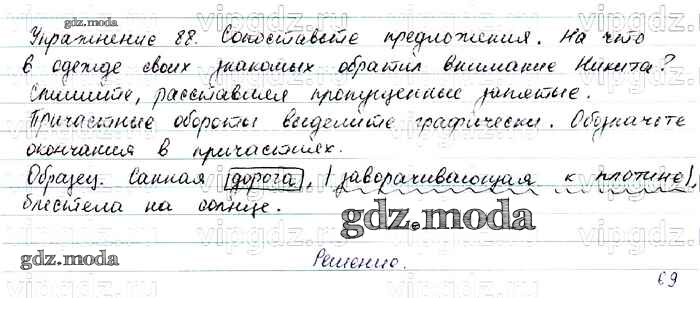 gdz.moda
Упражнение 88. Сопоставьте предложения. На что
в одежде своих знакомых обратил внимание Никита?
Спишите, расставляя пропущенные запятые.
Причастные обороты выделите графически. Обозначьте
окончания в причастиях.
Образец. Санная дорога, | заворачивающая к плотине|,
блестела на солнце.
gdz.moda
gdz.moda
Решение.
69